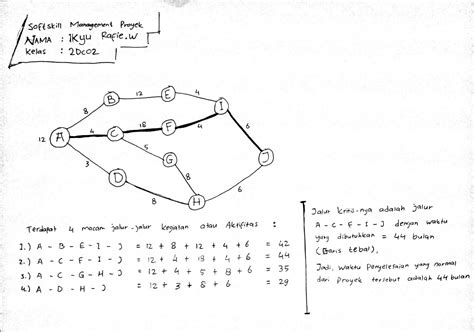 Softskill Management Proyek
NAMA : IKyu Rafie.W
Kelas : 2DC02
B 12 E 4
8 I
12 A 4 C 18 F 4 6
3 5 G J
D 8
8 H 6
Terdapat 4 macam jalur-jalur kegiatan atau Aktifitas :
1.) A - B - E - I - J = 12 + 8 + 12 + 4 + 6 = 42
2.) A - C - F - I - J = 12 + 4 + 18 + 4 + 6 = 44
3.) A - C - G - H - J = 12 + 4 + 5 + 8 + 6 = 35
4.) A - D - H - J = 12 + 3 + 8 + 6 = 29
Jalur kritis-nya adalah jalur
A - C - F - I - J dengan waktu
yang dibutuhkan = 44 bulan
(Garis tebal),
Jadi, waktu Penyelesaian yang normal
dari Proyek tersebut adalah 44 bulan